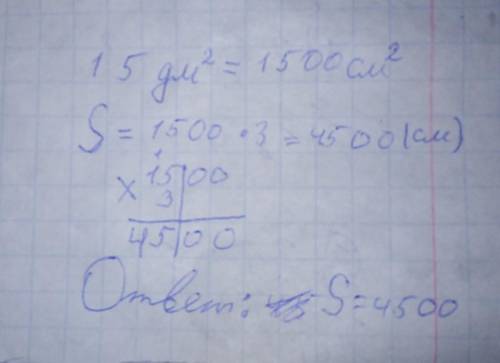 15 дм² = 1500 см²
S = 1500 · 3 = 4500 (см)
1
× 1500
3
4500
Ответ: S = 4500